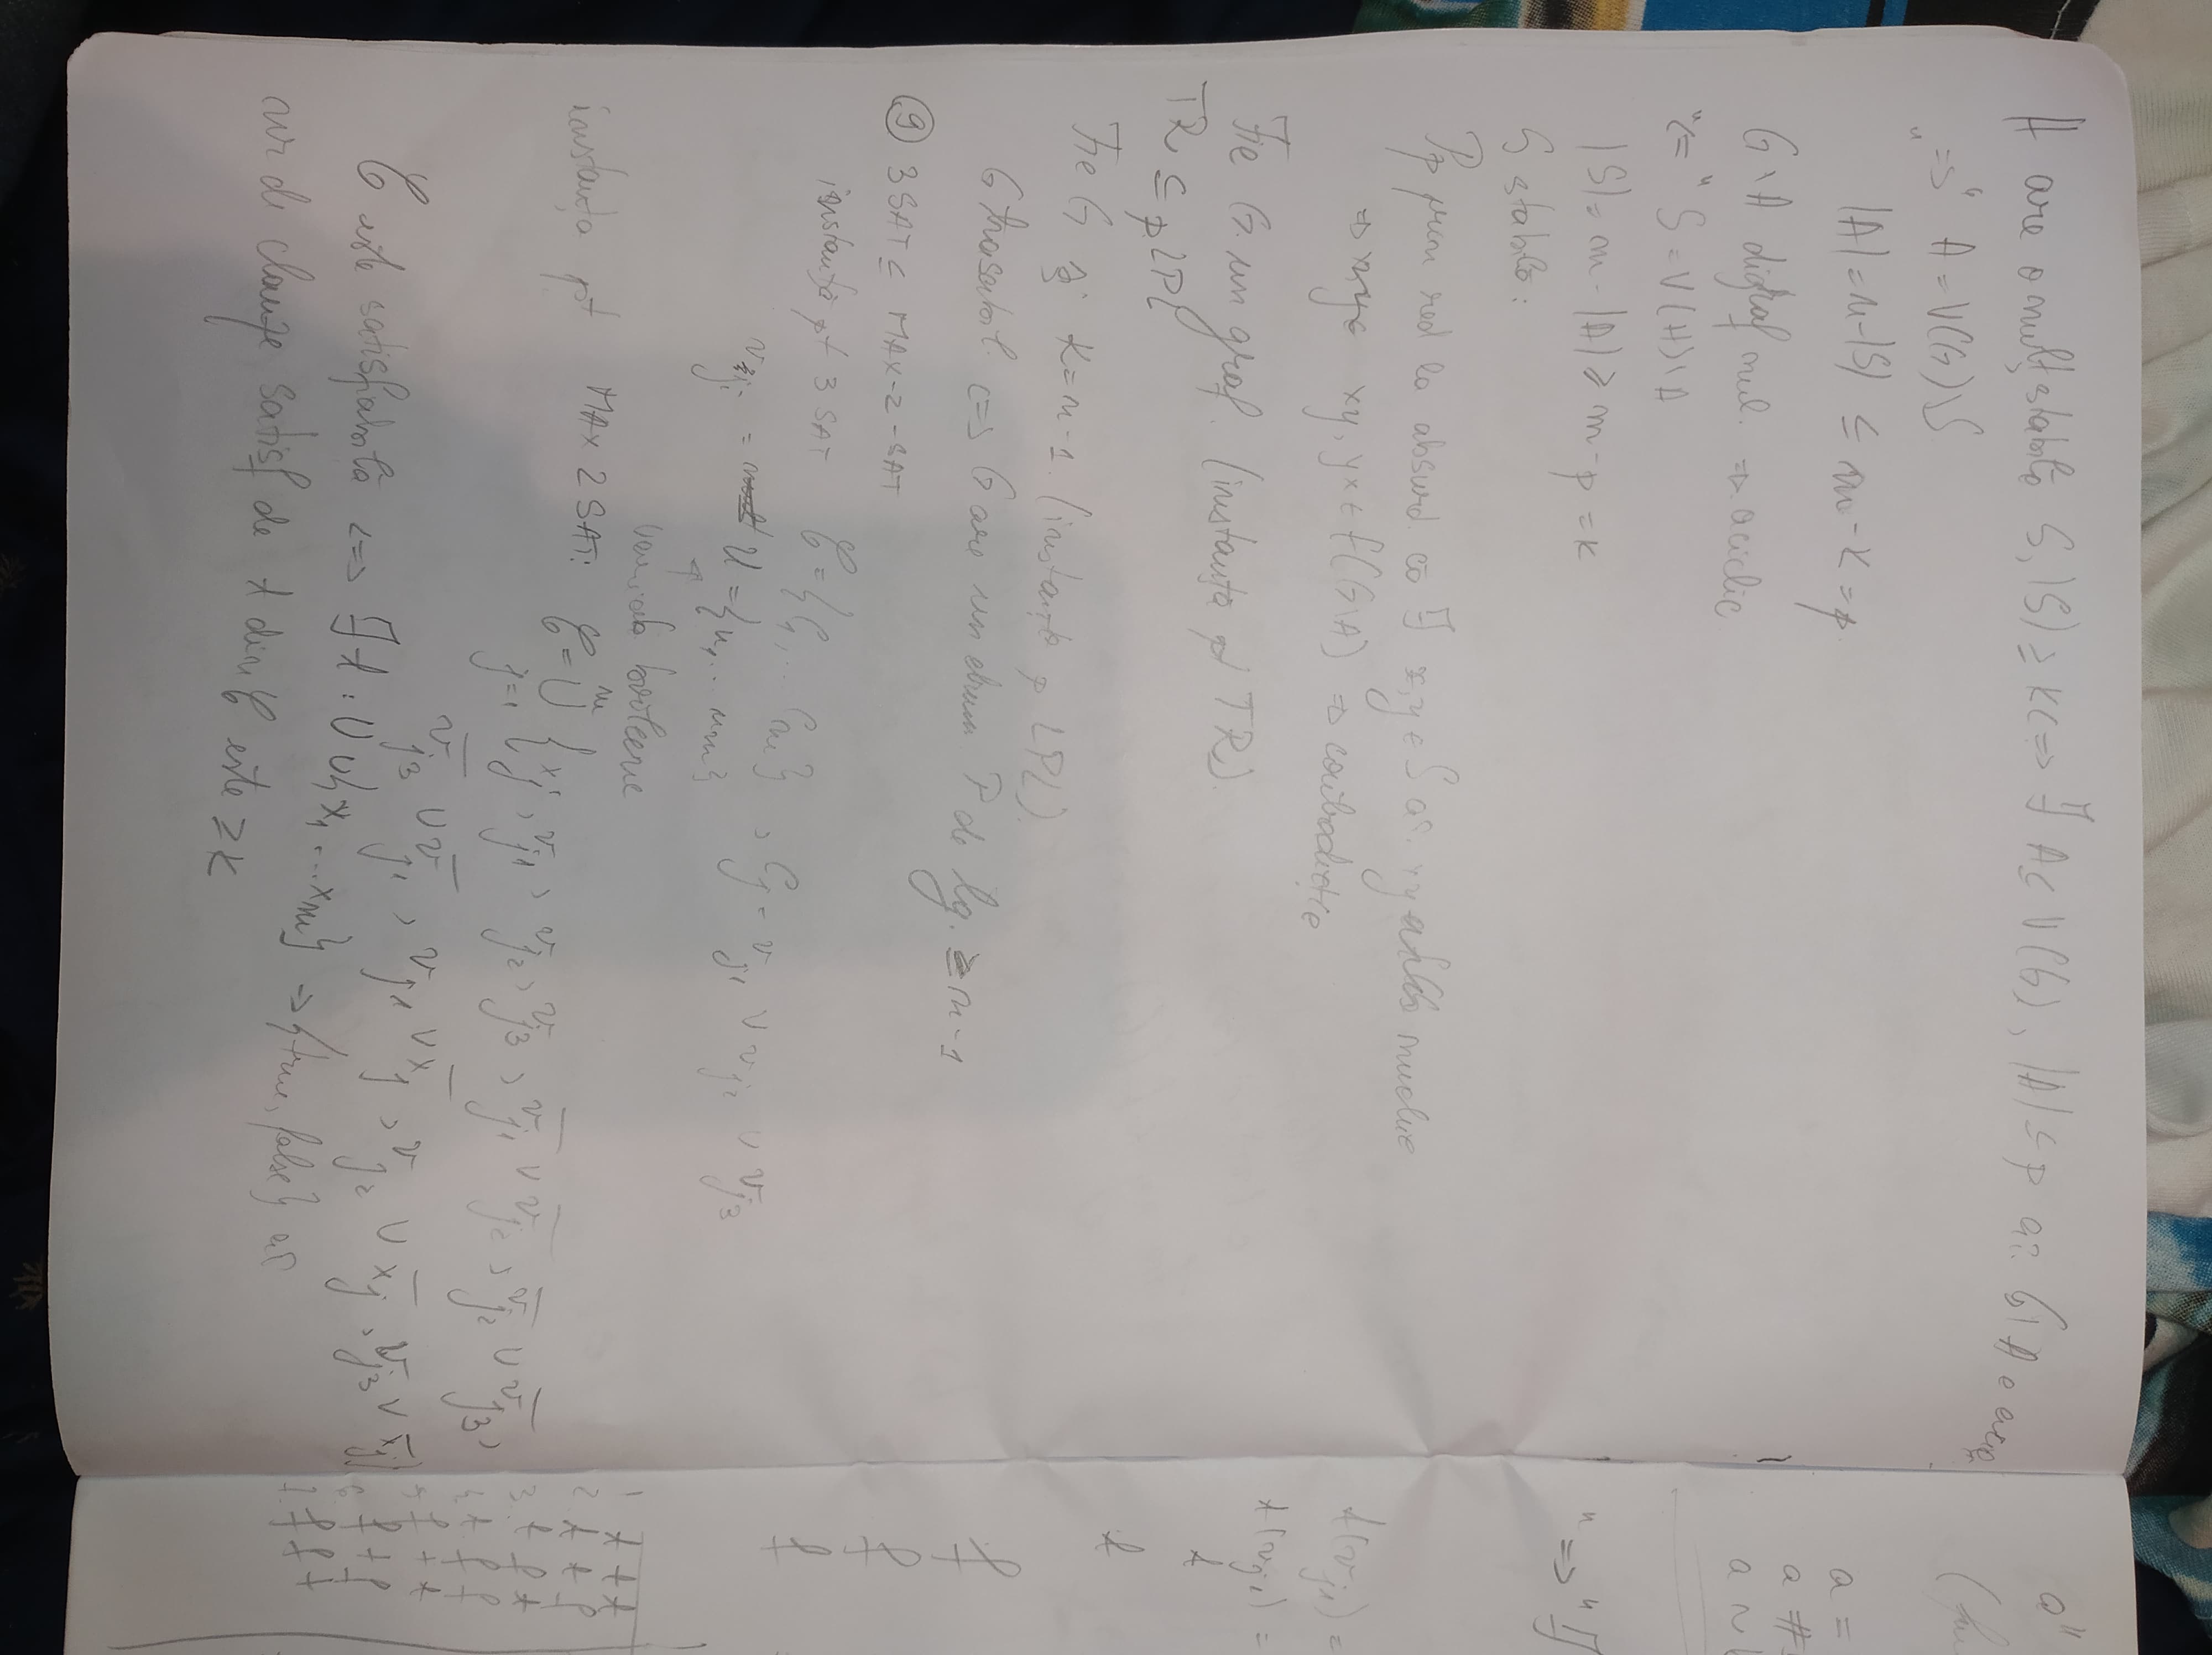 H are o mulț. stabilă S, |S| ≥ k <=> ∃ A ⊆ V(G), |A| ≤ p aî. G\A e
"=>" A = V(G)\S
|A| = n - |S| ≤ n - k = p.
G\A digraf nul. => aciclic
"<=" S = V(H)\A
|S| = n - |A| ≥ n - p = k
S stabilă:
Pp prin red la absurd că ∃ x,y ∈ S aî. xy muchie
=> xy, yx ∈ (G\A) => contradicție
Fie G un graf. (instanța pt TR).
TR ≤p LPL
Fie G și k = n-1. (instanța p LPL).
G trasabil <=> G are un drum P de lg. ≥ n-1
⑨ 3SAT ≤ MAX-2-SAT
instanță pt 3SAT
C = {C1, ... Cm} , Cj = vj1 ∨ vj2 ∨ vj3
U = {u1, ... un}
variabile booleene
instanța pt MAX 2SAT: C = ⋃ j=1 m { xj, vj1, vj2, vj3, v̄j1 ∨ v̄j2, v̄j2 ∨ v̄j3,
v̄j3 ∨ v̄j1, vj1 ∨ x̄j, vj2 ∨ x̄j, vj3 ∨ x̄j }
C este satisfiabilă <=> ∃ t : U ∪ {x1 ... xm} → {true, false} aî
nr de clauze satisf de t din C este ≥ k
a =
a #
"=>" ∃
t(vj1) =
t(vj1) =
t
t
f
f
f
1. t t t
2. t t f
3. t f t
4. t f f
5. f t t
6. f t f
7. f f t